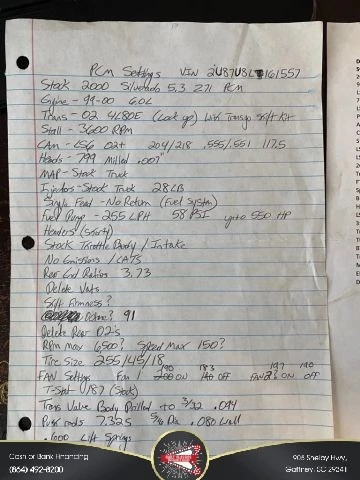 PCM Settings VIN 2U87U8L161557
Stock 2000 Silverado 5.3 Z71 PCM
Engine - 99-00 6.0L
Trans - 02 4L80E (Lock up) With Transgo Shift Kit
Stall - 3600 RPM
CAM - LS6 02+ 204/218 .555/.551 117.5
Heads - 799 Milled .007"
MAP - Stock Truck
Injectors - Stock Truck 28LB
Single Feed - No Return (Fuel System)
Fuel Pump - 255 LPH 58 PSI up to 550 HP
Headers (Shorty)
Stock Throttle Body / Intake
No Emissions / CATS
Rear End Ratios 3.73
Delete Vats
Shift Firmness?
Octane? 91
Delete Rear O2's
RPM Max 6500? Speed Max 150?
Tire Size 255/45/18
190 183 197 190
FAN Settings Fan 1 ON OFF FAN 2 ON OFF
T-Stat 187 (Stock)
Trans Valve Body Drilled to 3/32 .094
Push rods 7.325 5/16 Dia .080 Wall
Lift Springs
Cash or Bank Financing
(864) 492-8200
905 Shelby Hwy,
Gaffney, SC 29341